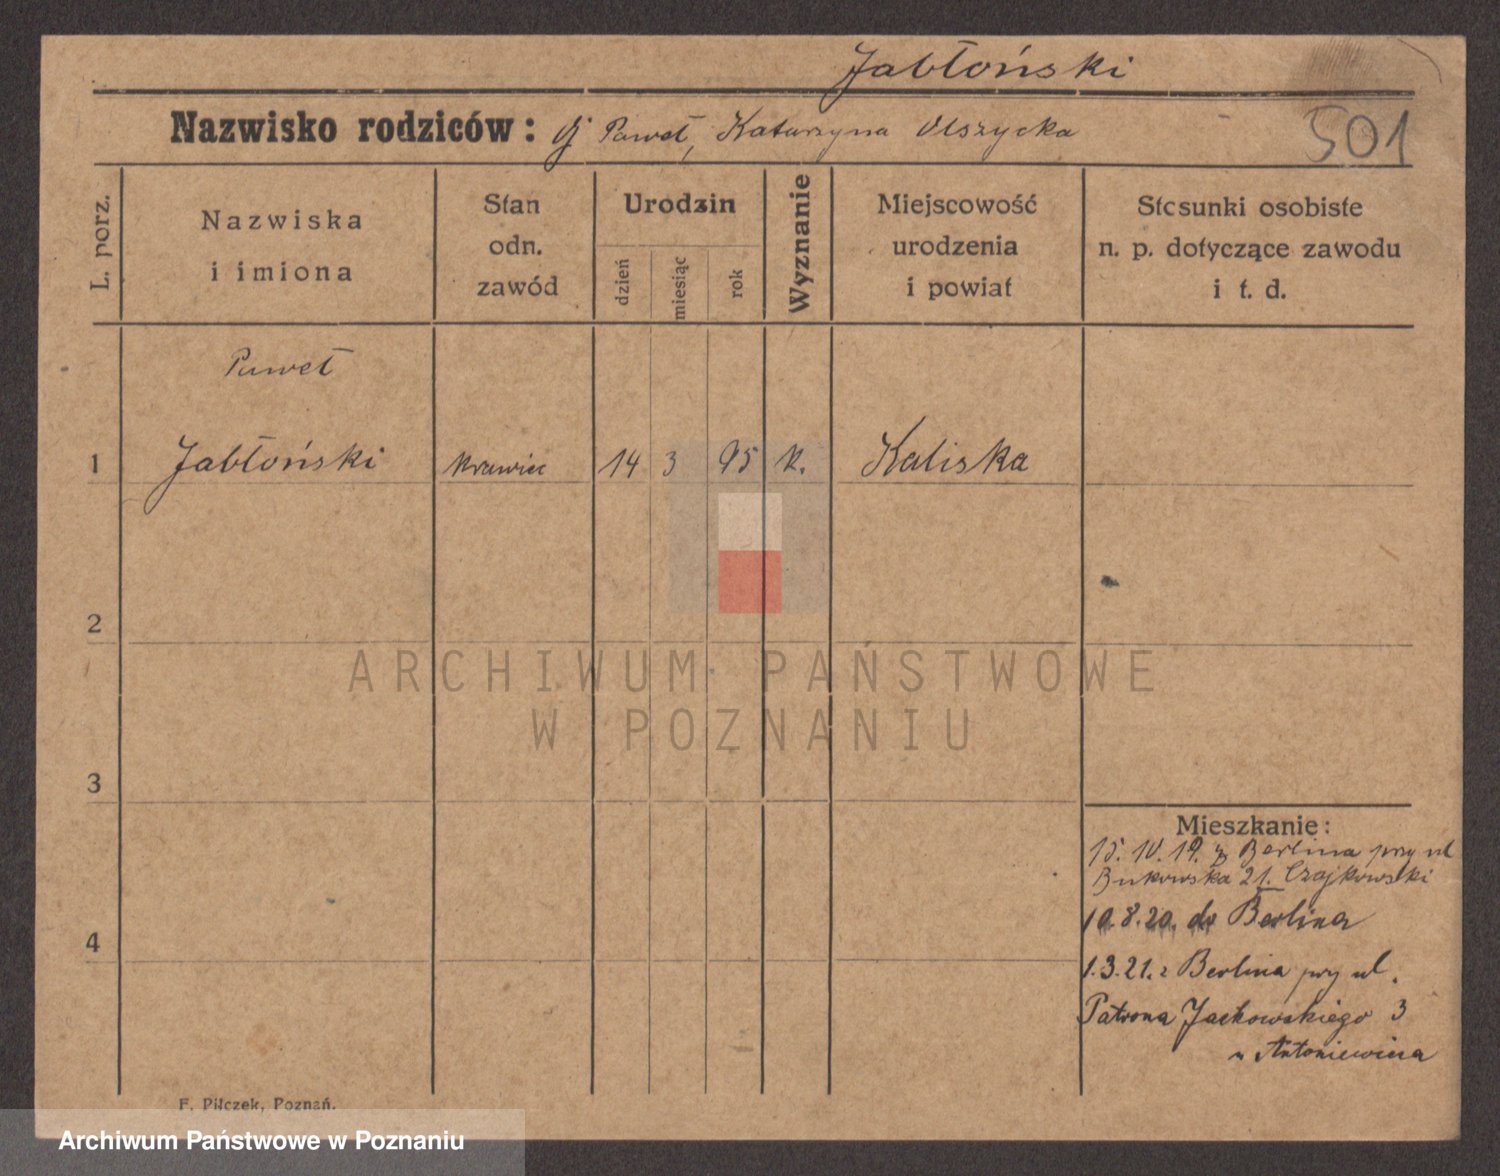 Jabłoński
Nazwisko rodziców: Oj Paweł, Katarzyna Olszycka
501
L. porz.
Nazwiska
i imiona
Stan
odn.
zawód
Urodzin
dzień
miesiąc
rok
Wyznanie
Miejscowość
urodzenia
i powiat
Stosunki osobiste
n. p. dotyczące zawodu
i t. d.
Paweł
1 Jabłoński krawiec 14 3 95 k. Kaliska
2
ARCHIWUM PAŃSTWOWE
W POZNANIU
3
Mieszkanie:
15. 10. 19. z Berlina przy ul
Bukowska 21. Czajkowski
4
10.8.20. do Berlina
1.3.21. z Berlina przy ul.
Patrona Jackowskiego 3
u Antoniewicza
F. Pilczek, Poznań.
Archiwum Państwowe w Poznaniu